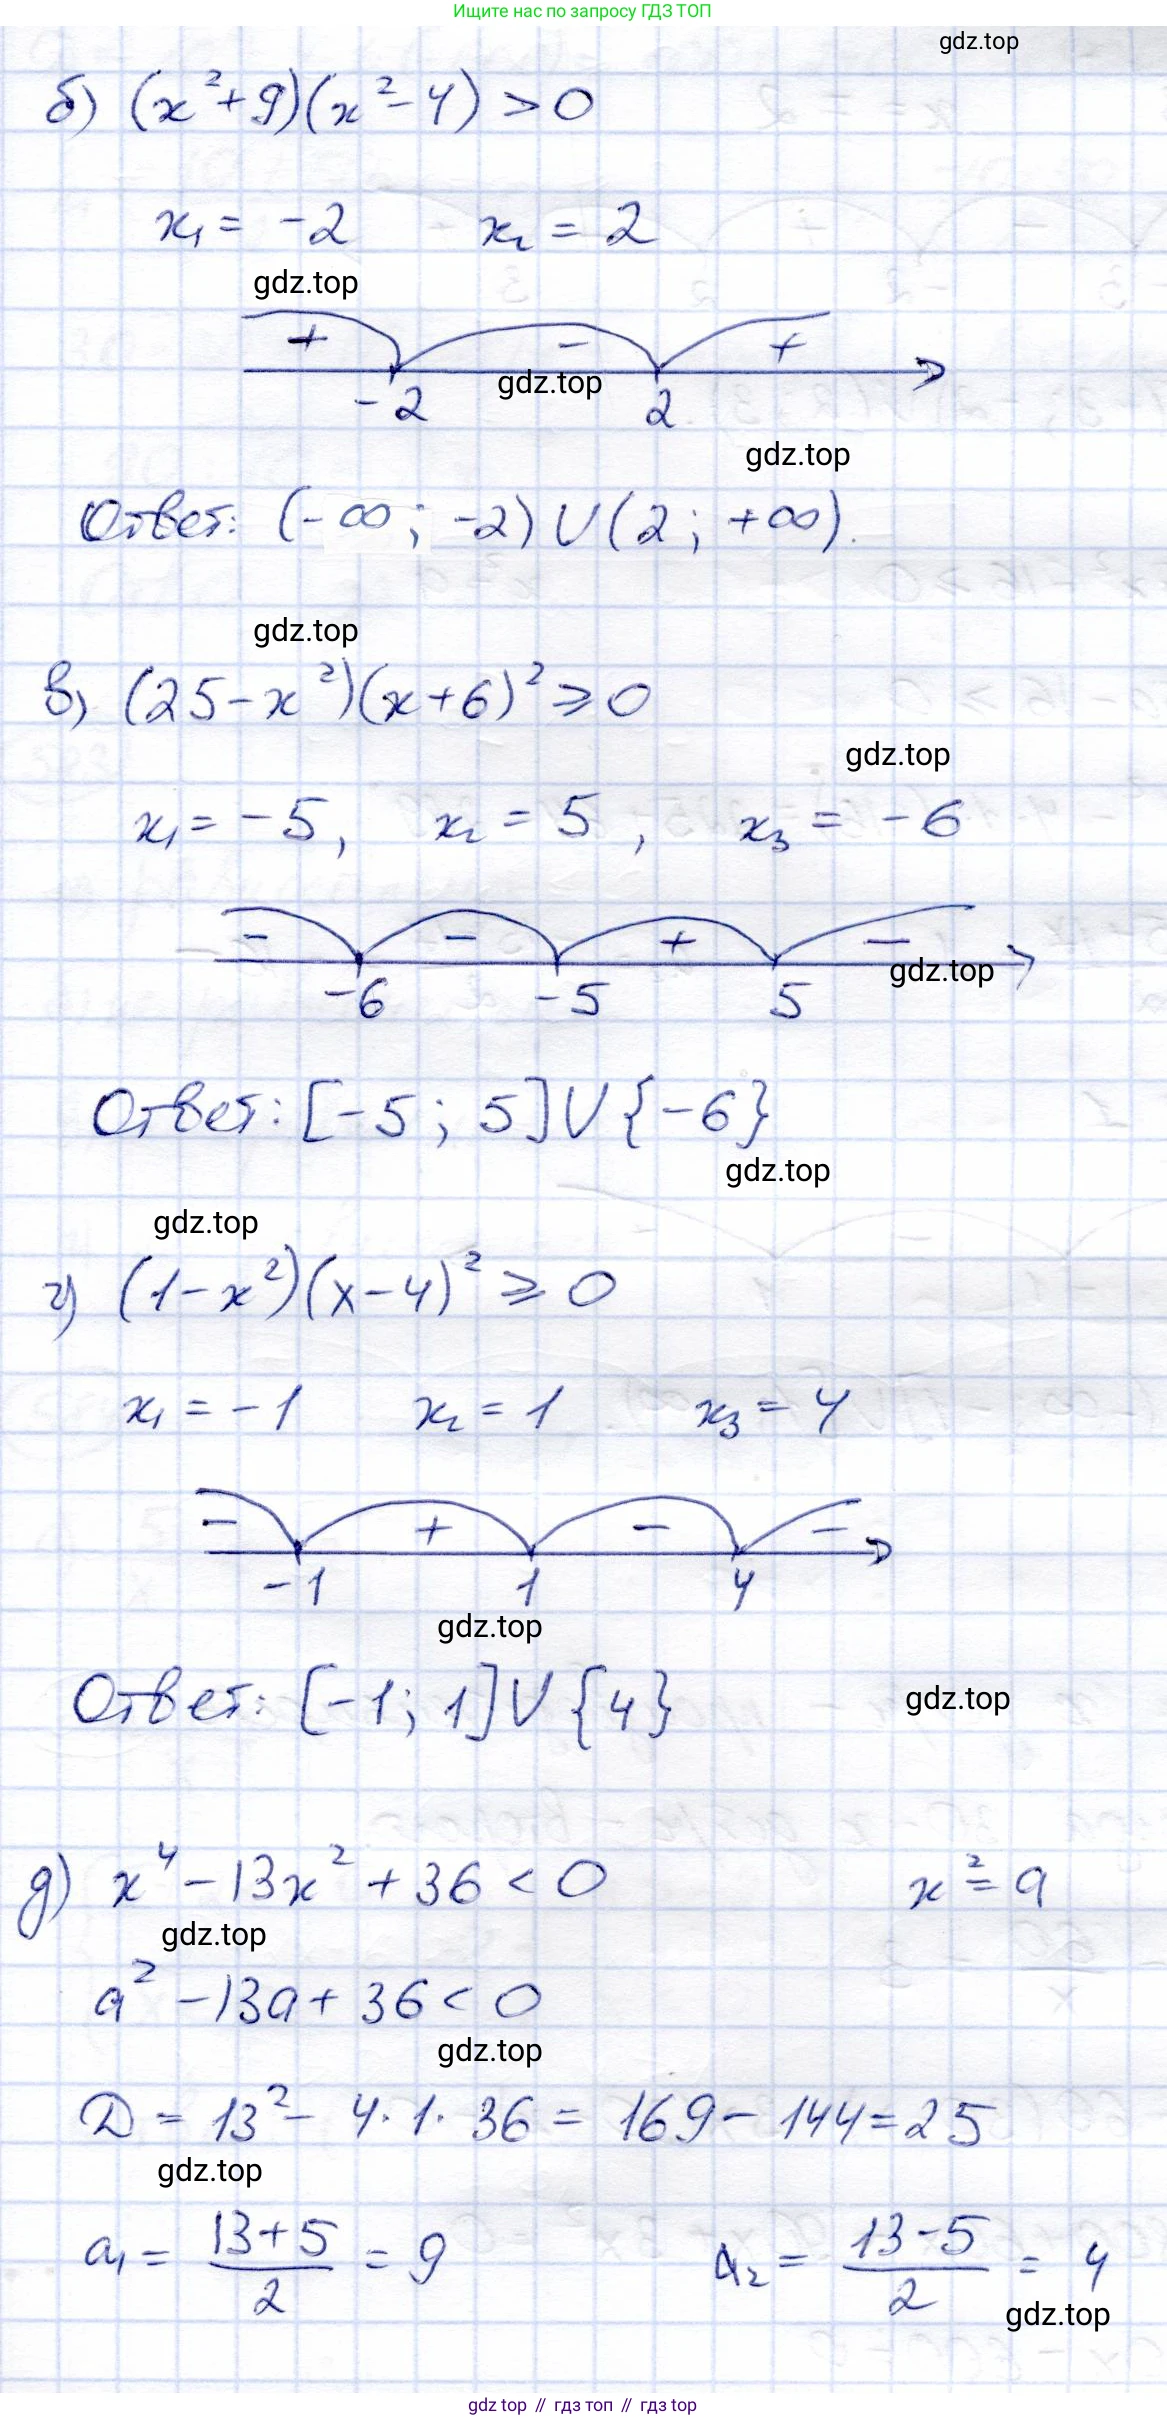 Ищите нас по запросу ГДЗ ТОП
gdz.top
б) (x²+9)(x²-4) > 0
x₁ = -2 x₂ = 2
gdz.top
+ - +
gdz.top
-2 2
gdz.top
Ответ: (-∞; -2) ∪ (2; +∞).
gdz.top
в) (25-x²)(x+6)² ⩾ 0
gdz.top
x₁ = -5, x₂ = 5, x₃ = -6
- - + -
gdz.top
-6 -5 5
Ответ: [-5; 5] ∪ {-6}
gdz.top
gdz.top
г) (1-x²)(x-4)² ⩾ 0
x₁ = -1 x₂ = 1 x₃ = 4
- + - -
-1 1 4
gdz.top
Ответ: [-1; 1] ∪ {4}
gdz.top
д) x⁴ - 13x² + 36 < 0 x² = a
gdz.top
a² - 13a + 36 < 0
gdz.top
D = 13² - 4·1·36 = 169 - 144 = 25
gdz.top
a₁ = (13+5)/2 = 9 a₂ = (13-5)/2 = 4
gdz.top
gdz top // гдз топ // гдз top